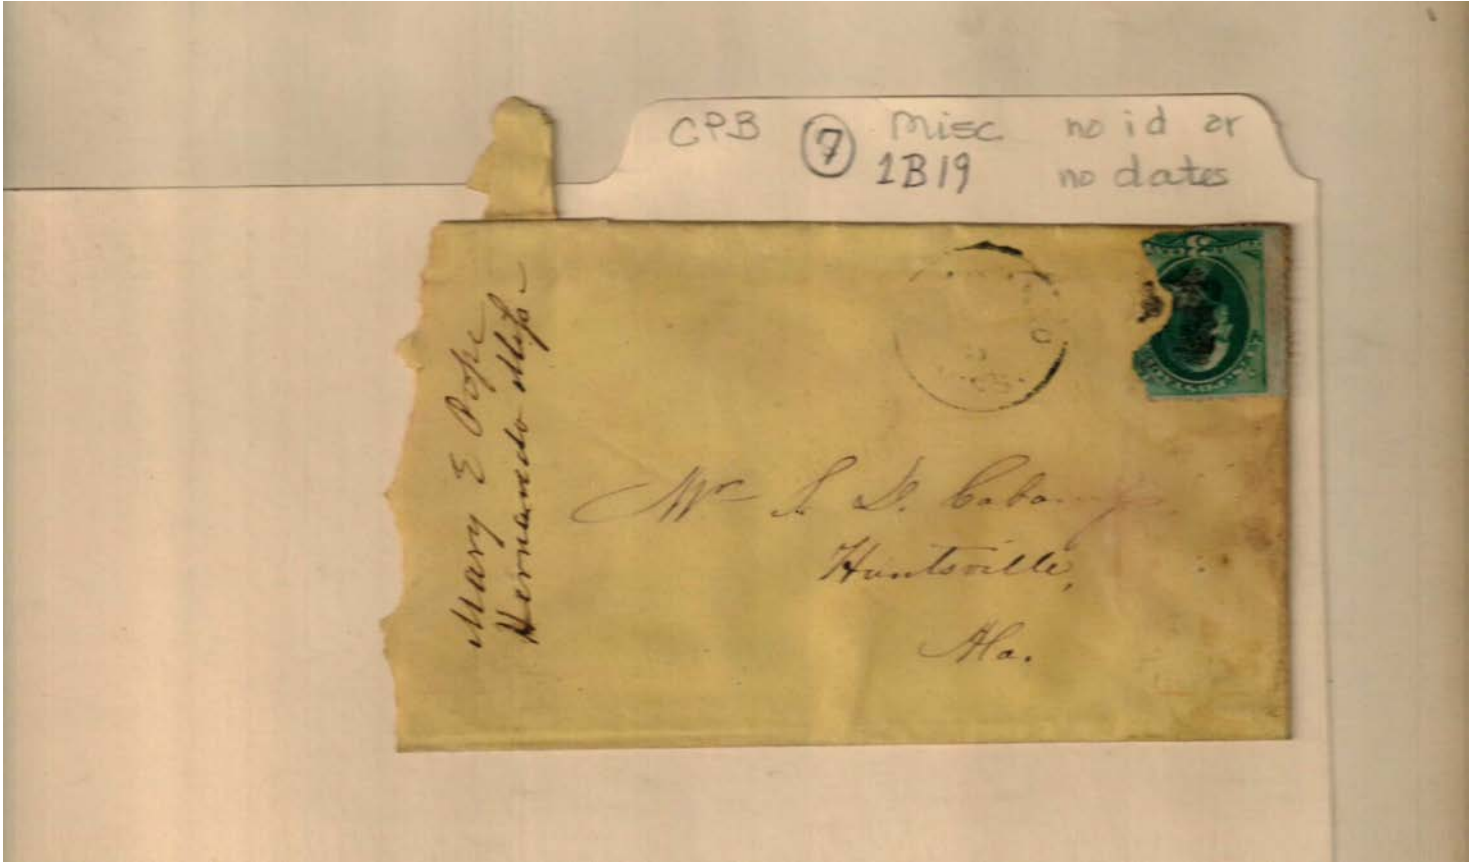 CPB 7 Misc no id or
1B19 no dates
Mary E Pope
Hernando Miss
Mr S. D. Cabaniss
Huntsville,
Ala.